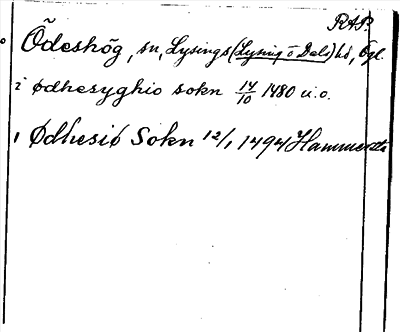 RAP.
Ödeshög, sn, Lysings (Lysing o Dals) hd, Ögl.
i ødhesyghio sokn 14/10 1480 u.o.
i Ødhesiö Sokn 12/1 1494 Hammerstå